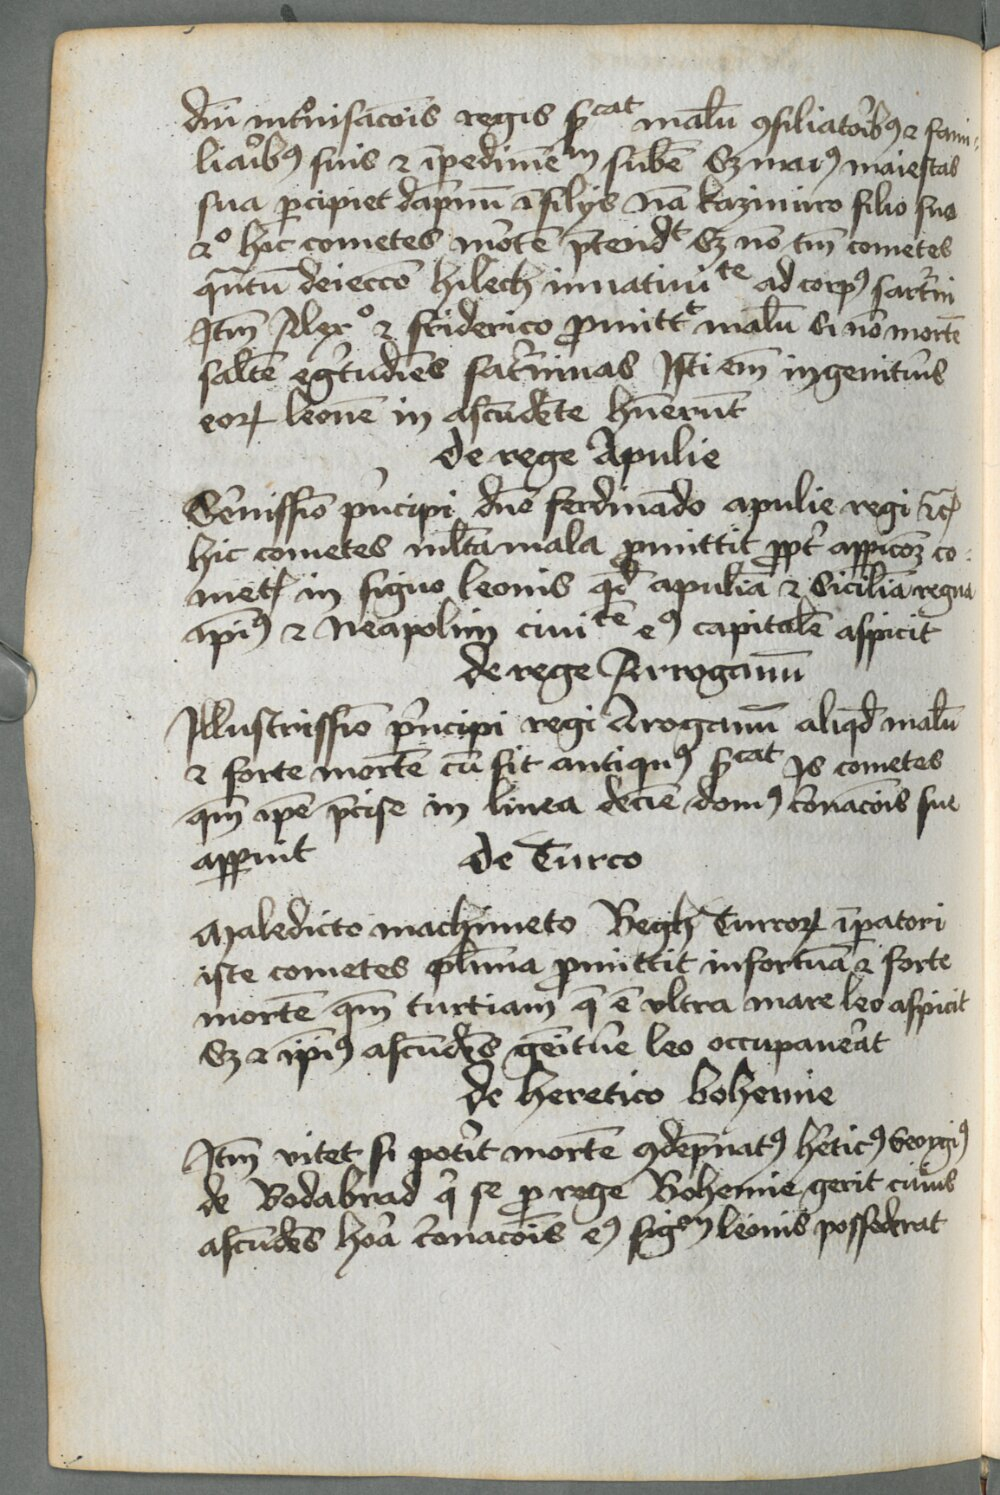 dni intronisacois regis sicat malu ꝯsiliatoribꝰ ⁊ fami
liaribꝰ suis ⁊ ipedimetu sube Sz maiꝰ maiestas
sua percipiet dapnu i filiis na kazimiro filio suo
2º hic cometes morte ptendit Sz no tm cometes
qntu deieccō hilech in natiuite ad corpꝰ saturni
Itm Alexº ⁊ friderico promittit malu Si no morte
salte egritudies saturninas Isti em in genituris
eorꝝ leone in ascendete huerunt
de rege Apulie
Serenissīo principi dno ferdinando apulie regi ⁊c̃
hic cometes ml̃ta mala promittit propt appicoz co
metꝭ in signo leonis qd apulia ⁊ Sicilia regna
ipiꝰ ⁊ Neapolim ciuitē eꝰ capitale aspicit
de rege Arroganū
Illustrissīo principi regi Aroganū aliqd malū
⁊ forte mortē cū sit antiquꝰ sicat Is cometes
qm ipē p̄cise in linea decīe domꝰ coronacois sue
apparuit de Turco
Maledicto machimeto Begh Turcorꝝ ip̄atori
iste cometes plima promittit infortuā ⁊ forte
mortē qm turtiam q̄ ē vltra mare leo aspicit
Sz ⁊ ipiꝰ ascēdēs geniture leo occupauerat
de heretico bohemie
Itm vitet si poterit mortē ꝯdēpnatꝰ hereticꝰ Georgiꝰ
de Bodabrad q̄ se pro rege Bohemie gerit cuius
ascēdēs hora coronacois eꝰ signū leonis possederat